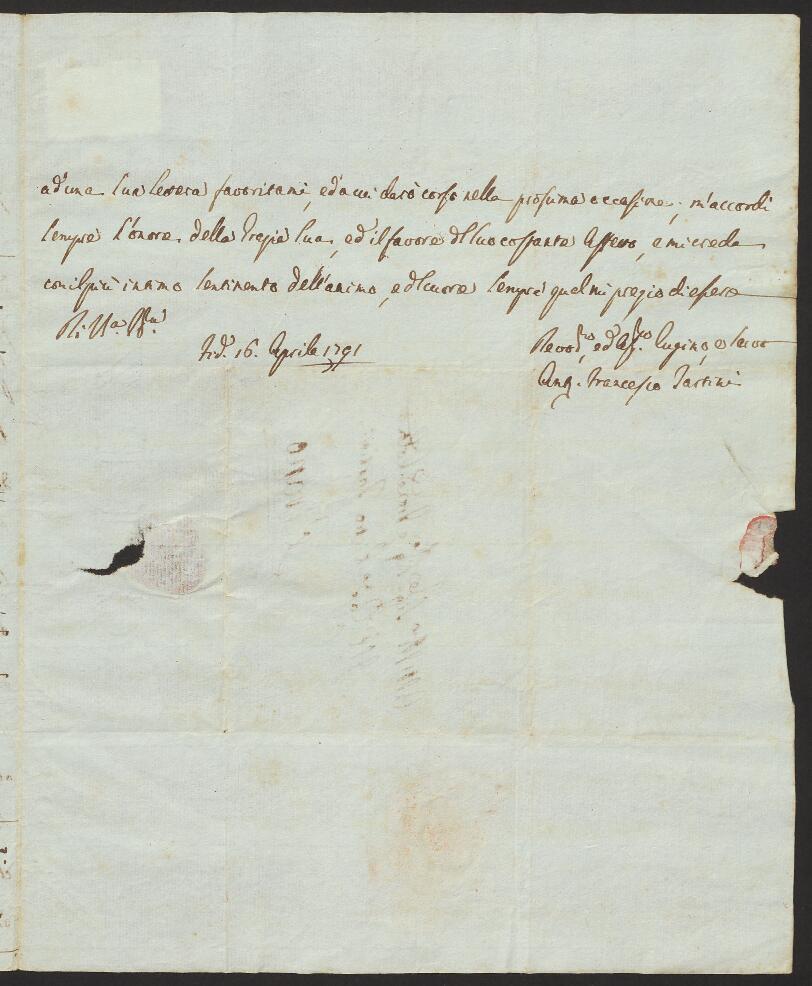 ad una sua lettera favoritami, ed a cui darò corso nella prossima occasione; m'accordi
sempre l'onore della Grazia sua, ed il favore del suo costante affetto, e mi creda
con il più intimo sentimento dell'animo, e del cuore sempre qual mi pregio di essere
Di V.a
16. Aprile 1791
ed Cugino, e servo
Francesco Tartini